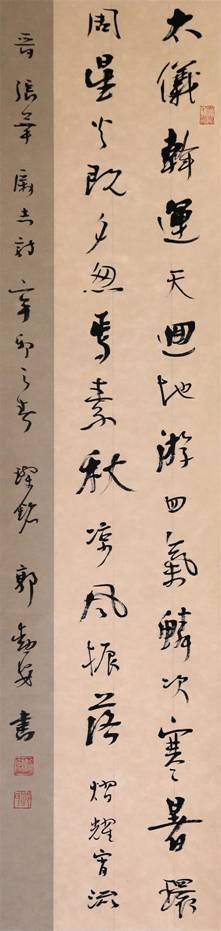 太儀斡運天迴地游四氣鱗次寒暑環
周星火既夕忽焉素秋凉風振落熠耀宵流
晋張華勵志詩辛卯之春 郭 書